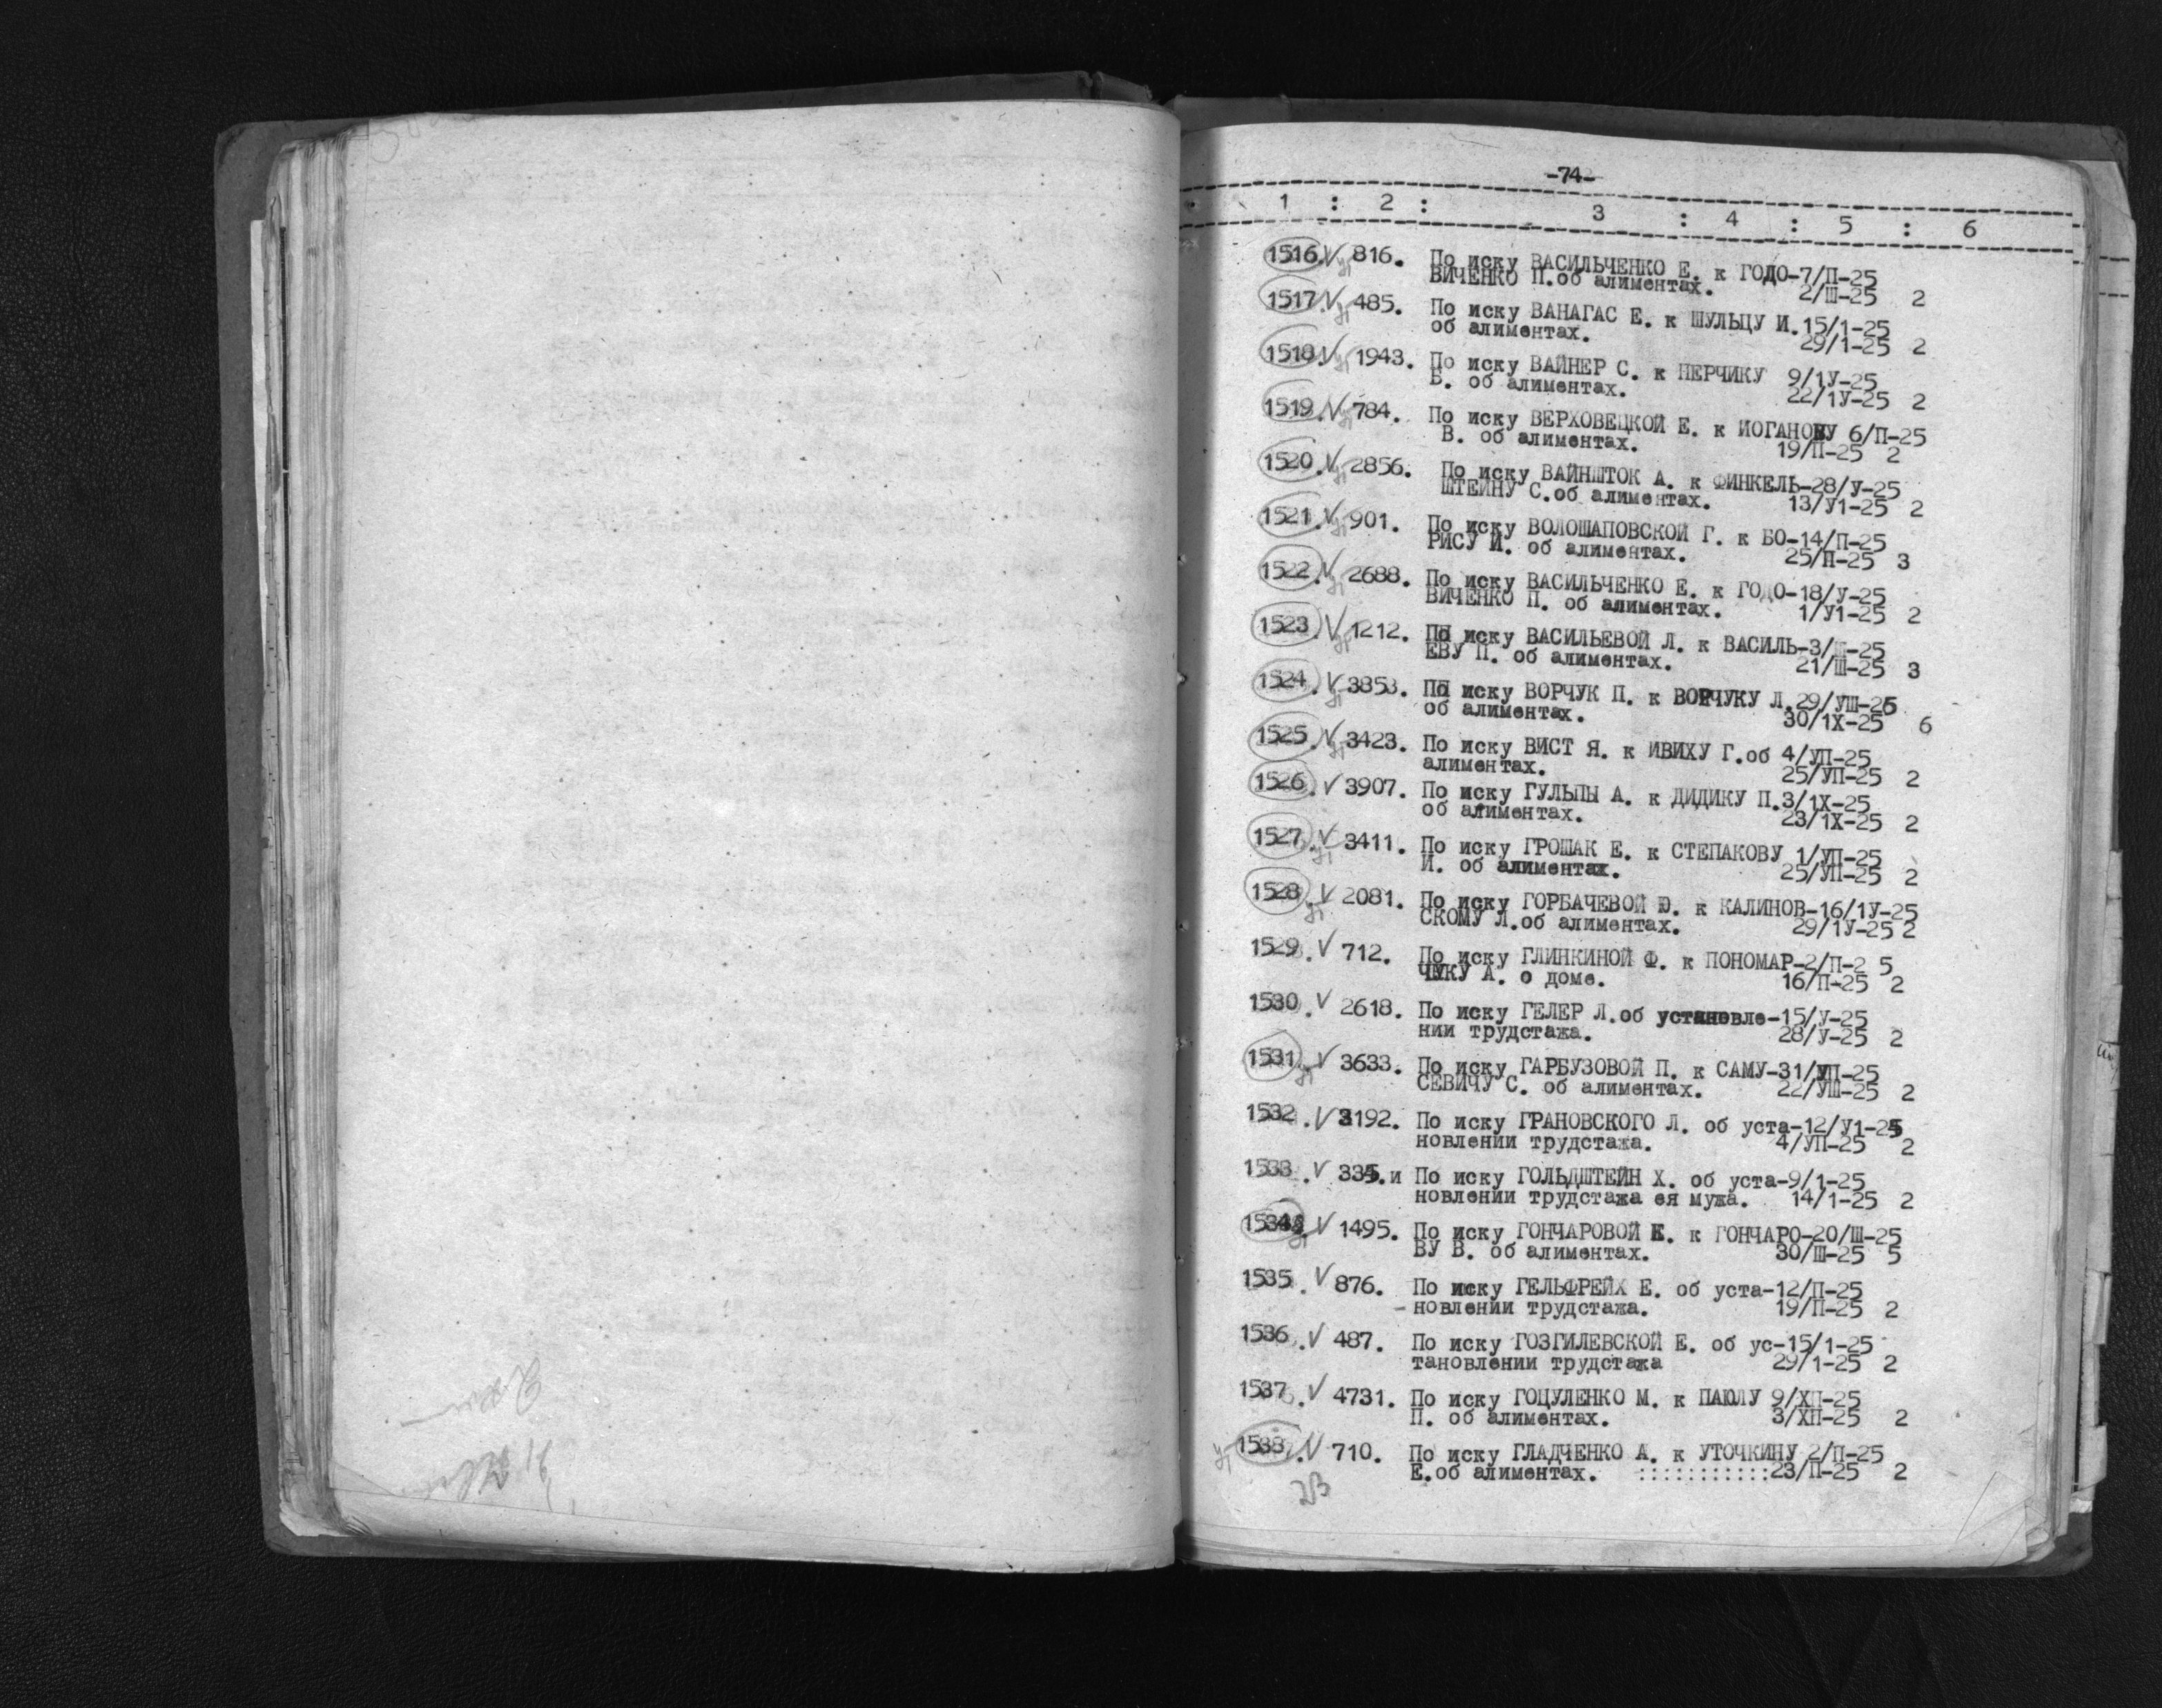 -74-
1 : 2 : 3 : 4 : 5 : 6
1516. V 816. По иску ВАСИЛЬЧЕНКО Е. к ГОДО-7/П-25
ВИЧЕНКО П.об алиментах. 2/Ш-25 2
1517. V 485. По иску ВАНАГАС Е. к ШУЛЬЦУ И.15/1-25
об алиментах. 29/1-25 2
1518. V 1943. По иску ВАЙНЕР С. к НЕРЧИКУ 9/1У-25
Б. об алиментах. 22/1У-25 2
1519. V 784. По иску ВЕРХОВЕЦКОЙ Е. к ИОГАНОВУ 6/П-25
В. об алиментах. 19/П-25 2
1520. V 2856. По иску ВАЙНШТОК А. к ФИНКЕЛЬ-28/У-25
ШТЕЙНУ С.об алиментах. 13/У1-25 2
1521. V 901. По иску ВОЛОШАПОВСКОЙ Г. к БО-14/П-25
РИСУ И. об алиментах. 25/П-25 3
1522. V 2688. По иску ВАСИЛЬЧЕНКО Е. к ГОДО-18/У-25
ВИЧЕНКО П. об алиментах. 1/У1-25 2
1523. V 1212. По иску ВАСИЛЬЕВОЙ Л. к ВАСИЛЬ-3/Ш-25
ЕВУ П. об алиментах. 21/Ш-25 3
1524. V 3853. По иску ВОРЧУК П. к ВОРЧУКУ Л.29/УШ-25
об алиментах. 30/1Х-25 6
1525. V 3423. По иску ВИСТ Я. к ИВИХУ Г.об 4/УП-25
алиментах. 25/УП-25 2
1526. V 3907. По иску ГУЛЬПЫ А. к ДИДИКУ П.3/1Х-25
об алиментах. 23/1Х-25 2
1527. V 3411. По иску ГРОШАК Е. к СТЕПАКОВУ 1/УП-25
И. об алиментах. 25/УП-25 2
1528. V 2081. По иску ГОРБАЧЕВОЙ Ю. к КАЛИНОВ-16/1У-25
СКОМУ Л.об алиментах. 29/1У-25 2
1529. V 712. По иску ГЛИНКИНОЙ Ф. к ПОНОМАР-2/П-2 5
ЧУКУ А. о доме. 16/П-25 2
1530. V 2618. По иску ГЕЛЕР Л.об установле-15/У-25
нии трудстажа. 28/У-25 2
1531. V 3633. По иску ГАРБУЗОВОЙ П. к САМУ-31/УП-25
СЕВИЧУ С. об алиментах. 22/УШ-25 2
1532. V 3192. По иску ГРАНОВСКОГО Л. об уста-12/У1-25
новлении трудстажа. 4/УП-25 2
1533. V 335.и По иску ГОЛЬДШТЕЙН Х. об уста-9/1-25
новлении трудстажа ея мужа. 14/1-25 2
1534. V 1495. По иску ГОНЧАРОВОЙ Е. к ГОНЧАРО-20/Ш-25
ВУ В. об алиментах. 30/Ш-25 5
1535. V 876. По иску ГЕЛЬФРЕЙХ Е. об уста-12/П-25
-новлении трудстажа. 19/П-25 2
1536. V 487. По иску ГОЗГИЛЕВСКОЙ Е. об ус-15/1-25
тановлении трудстажа 29/1-25 2
1537. V 4731. По иску ГОЦУЛЕНКО М. к ПАЮЛУ 9/ХП-25
П. об алиментах. 3/ХП-25 2
1538. V 710. По иску ГЛАДЧЕНКО А. к УТОЧКИНУ 2/П-25
Е.об алиментах. :::::::::::23/П-25 2